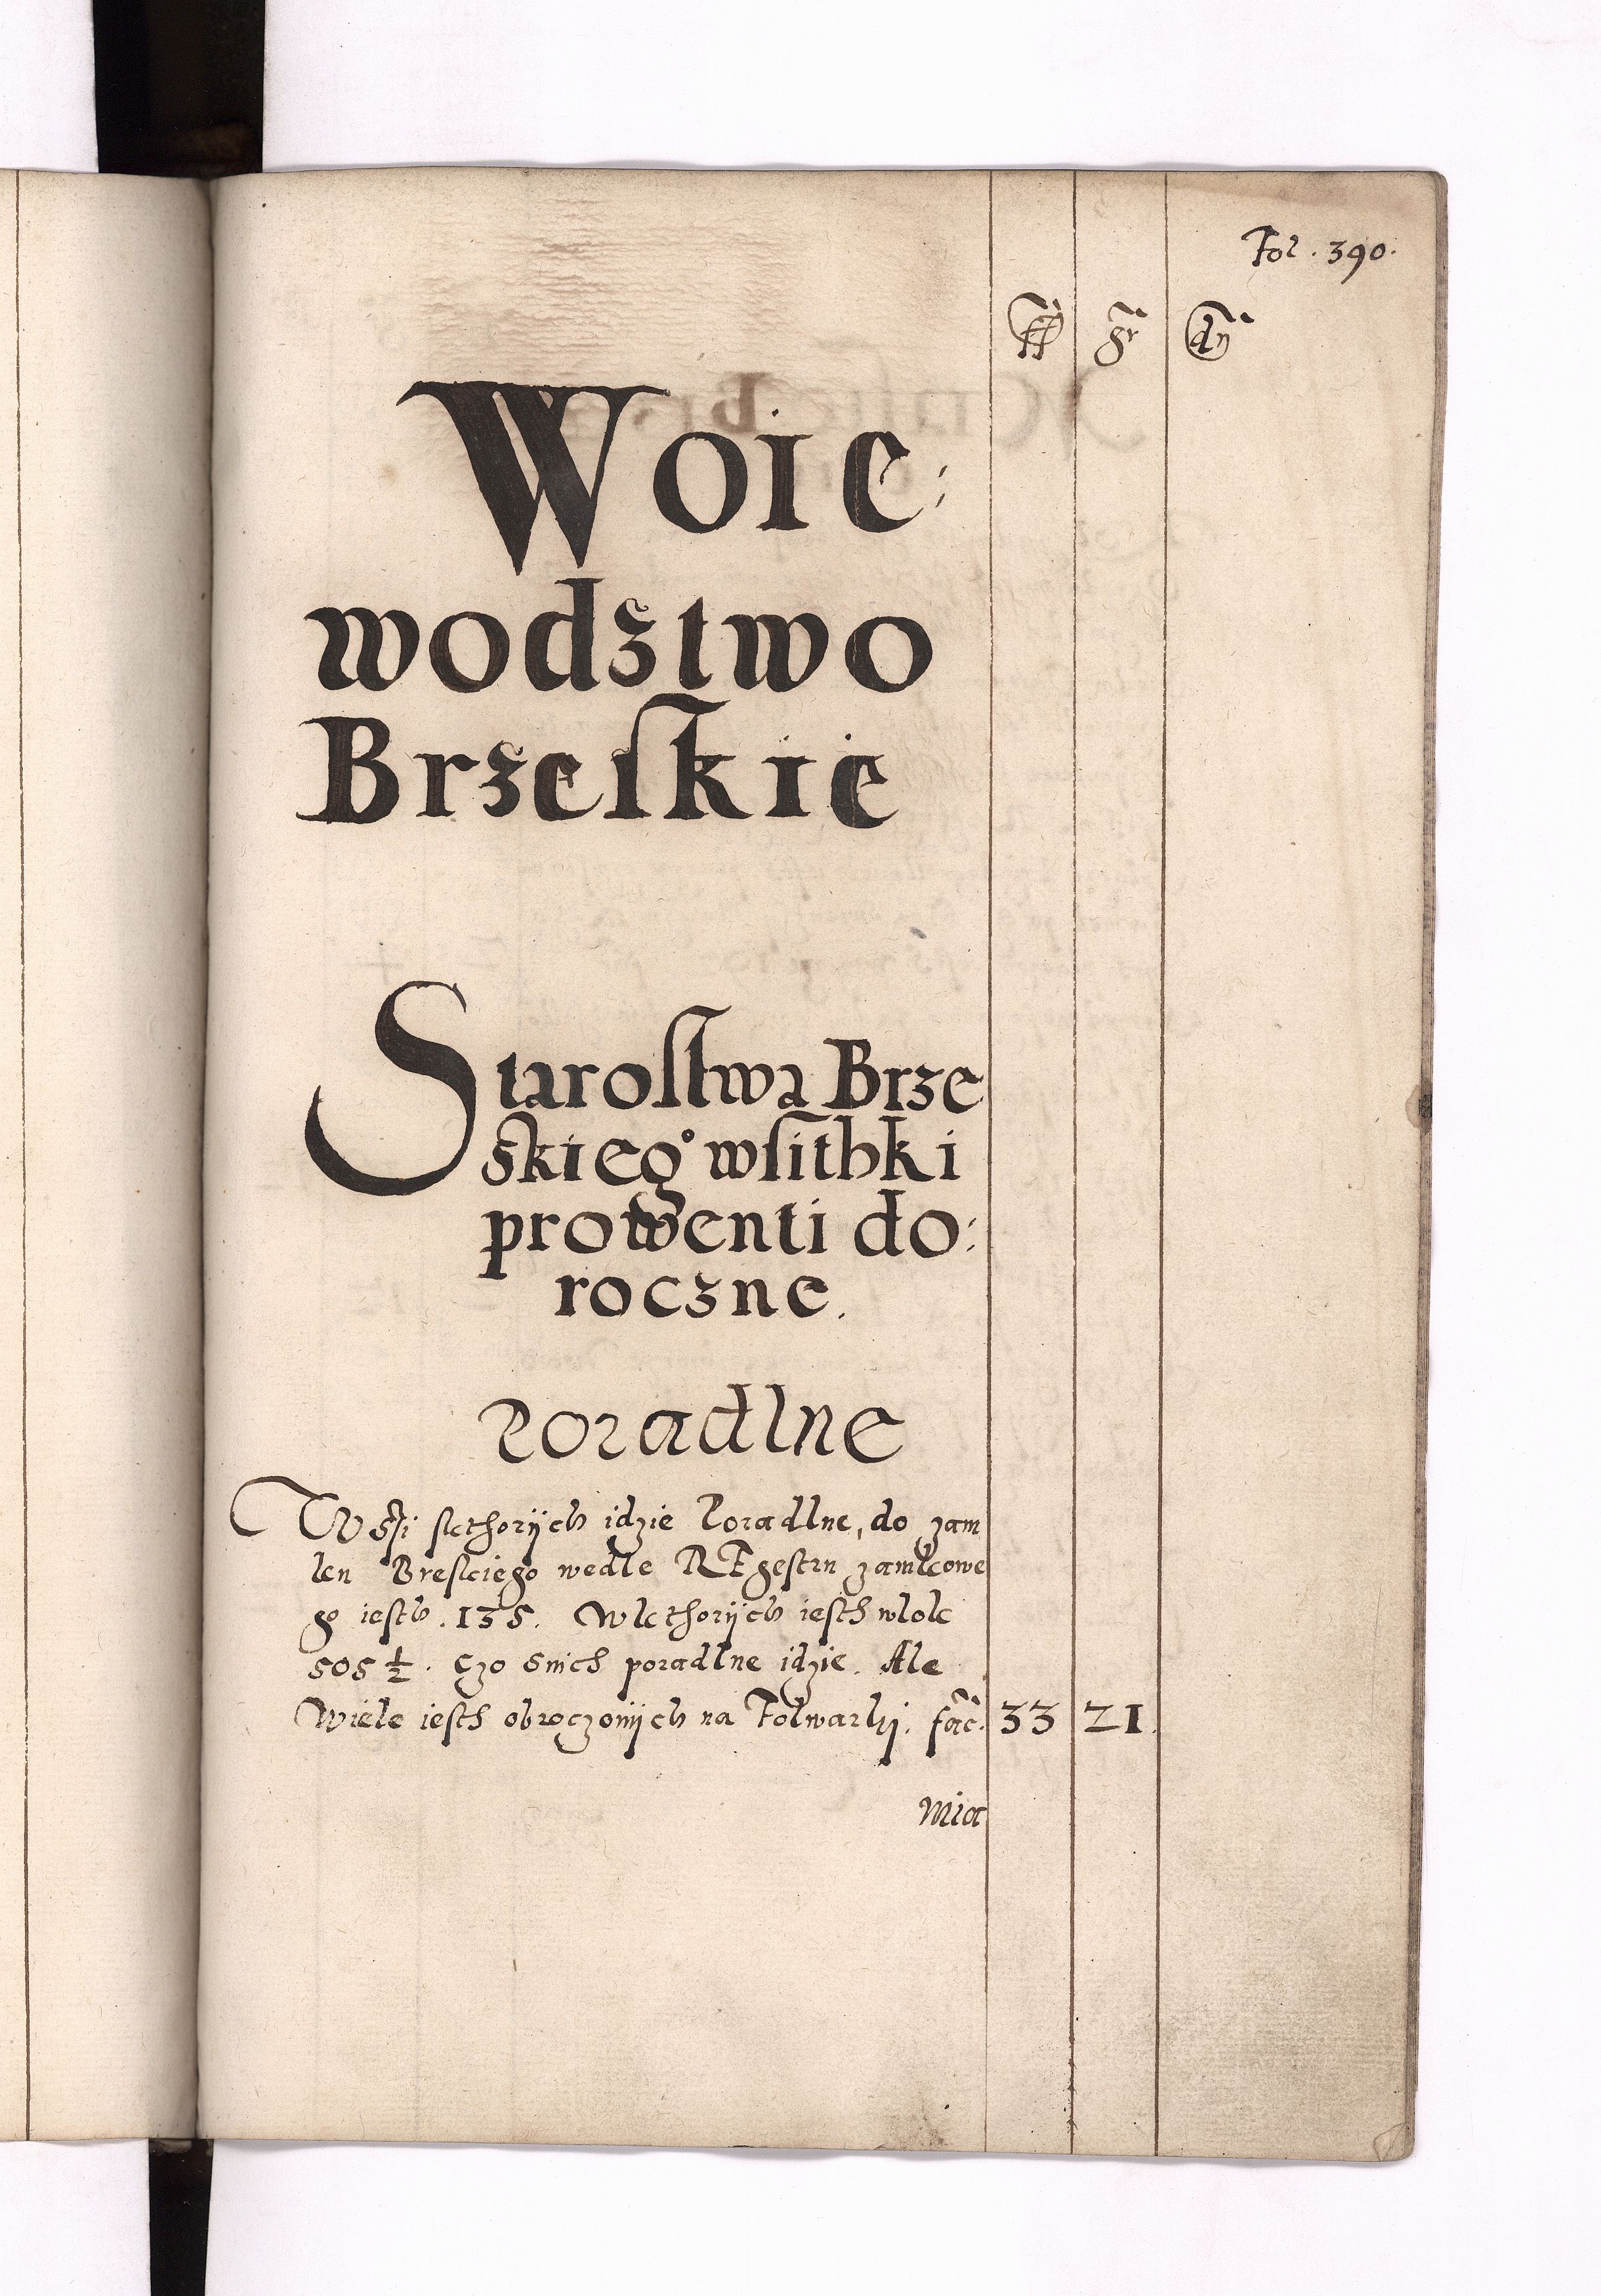 Fol. 390.
ff gr dn
Woie:
wodstwo
Brzeskie
Starostwa Brze
skiego wsithki
prowenti do:
roczne.
Poradlne
Wsŷi skthorijch idzie Poradlne, do zam
ku Breskiego wedle REgestru zamkowe
go iesth. 135. Wkthorijch iesth wlok
505 ½. Czo snich poradlne idzie. Ale
Wiele iesth obroczonijch na Folwarkij. fac. 33 21.
Mia